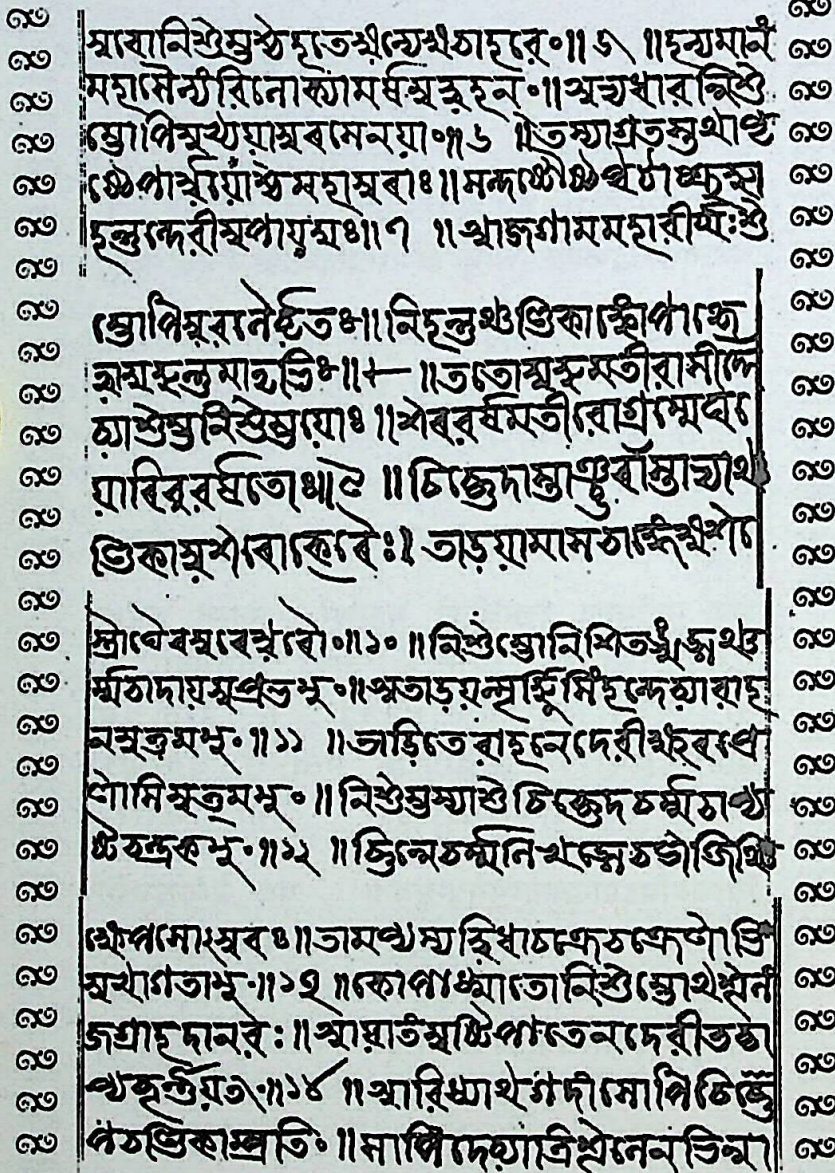 সুৰোনিশুম্ভশ্চহতেষ্বন্যেষুচাহবে॥৫॥হন্যমানং
মহাসৈন্যংবিলোক্যামর্ষমুদ্বহন্॥অভ্যধাবন্নিশু
ম্ভোপিমুখ্যয়াসুৰসেনয়া॥৬॥তস্যাগ্রতস্তথাপৃ
ষ্ঠেপার্শ্বয়োশ্চমহাসুৰাঃ॥সন্দষ্টৌষ্ঠপুটাঃক্রুদ্ধা
হন্তুন্দেবীমুপায়য়ুঃ॥৭॥আজগামমহাবীর্য্যঃশু
ম্ভোপিস্ববলৈর্বৃতঃ॥নিহন্তুঞ্চণ্ডিকাঙ্কোপাৎকৃ
ত্বায়ুদ্ধন্তুমাতৃভিঃ॥৮॥ততোয়ুদ্ধমতীবাসীদ্দে
ব্যাশুম্ভনিশুম্ভয়োঃ॥শৰবর্ষমতীবোগ্রম্মেঘ
য়োৰিববর্ষতোঃ॥৯॥চিচ্ছেদাস্তাঞ্ছৰাঁস্তাভ্যাঞ্চ
ণ্ডিকাস্বশৰোৎকৰৈঃ॥তাড়য়ামাসচাঙ্গেষুশ
স্ত্রৌঘৈৰসুৰেশ্বৰৌ॥১০॥নিশুম্ভোনিশিতঙ্খড়্গঞ্চ
র্ম্মচাদায়সুপ্রভম্॥অতাড়য়ন্মূর্দ্ধ্নিসিংহন্দেব্যাবাহ
নমুত্তমম্॥১১॥তাড়িতেবাহনেদেবীক্ষুৰপ্রে
ণাসিমুত্তমম্॥নিশুম্ভস্যাশুচিচ্ছেদচর্ম্মচাপ্য
ষ্টচন্দ্রকম্॥১২॥ছিন্নেচর্ম্মণিখড়্গেচশক্তিঞ্চি
ক্ষেপসোঽসুৰঃ॥তামপ্যস্যদ্বিধাচক্রেচক্রেণাভি
মুখাগতাম্॥১৩॥কোপাধ্মাতোনিশুম্ভোথশূলং
জগ্রাহদানবঃ॥আয়াতংমুষ্টিপাতেনদেবীতচ্চা
প্যচূর্ণয়ৎ॥১৪॥আবিধ্যাথগদাংসোপিচিক্ষে
পচণ্ডিকাম্প্রতি॥সাপিদেব্যাত্রিশূলেনভিন্না